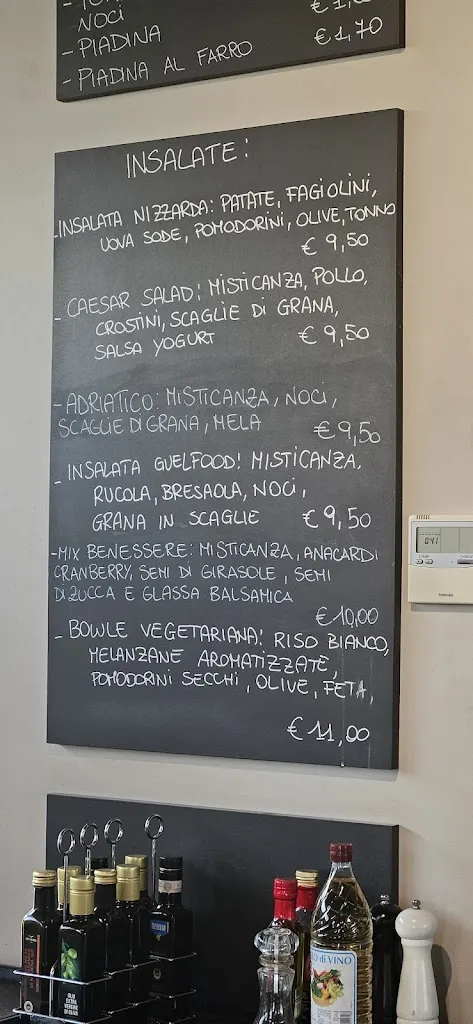 NOCI
- PIADINA
€ 1,70
- PIADINA AL FARRO
INSALATE:
-INSALATA NIZZARDA: PATATE, FAGIOLINI,
UOVA SODE, POMODORINI, OLIVE, TONNO
€ 9,50
- CAESAR SALAD: MISTICANZA, POLLO,
CROSTINI, SCAGLIE DI GRANA,
SALSA YOGURT € 9,50
- ADRIATICO: MISTICANZA, NOCI,
SCAGLIE DI GRANA, MELA €9,50
- INSALATA GUELFOOD: MISTICANZA,
RUCOLA, BRESAOLA, NOCI,
GRANA IN SCAGLIE € 9,50
-MIX BENESSERE: MISTICANZA, ANACARDI
CRANBERRY, SEMI DI GIRASOLE, SEMI
DI ZUCCA E GLASSA BALSAMICA
€10,00
- BOWLE VEGETARIANA: RISO BIANCO,
MELANZANE AROMATIZZATE,
POMODORINI SECCHI, OLIVE, FETA,
€ 11,00
TOSHIBA
di VINO
OLIO
EXTRA VERGINE
DI OLIVA